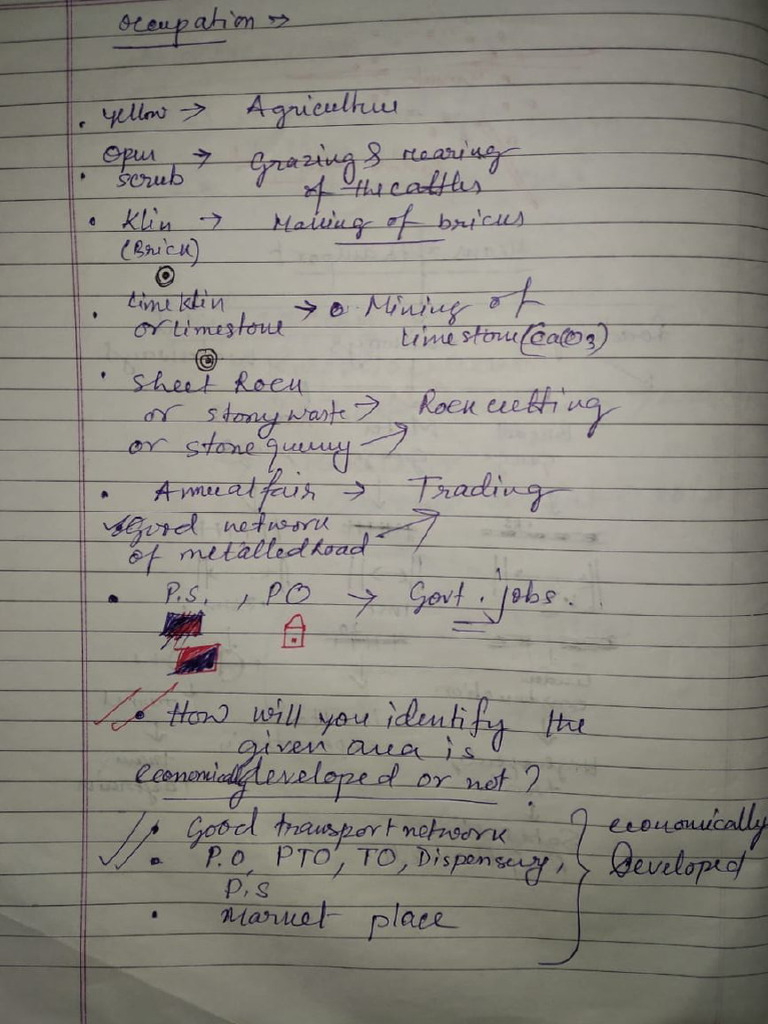 Occupation →
. Yellow → Agriculture
Open → Grazing & rearing
. scrub of the cattles
• Klin → Making of bricks
(Brick)
. Limeklin → Mining of
or limestone limestone (CaCO3)
. Sheet Rock
or stonywaste → Rock cutting
or stone querry
• Annual fair → Trading
Good network
of metalled road
• P.S. , PO → Govt. jobs.
• How will you identify the
given area is
economically developed or not ?
• Good transport network economically
• P.O, PTO, TO, Dispensery, Developed
P.S
• Market place